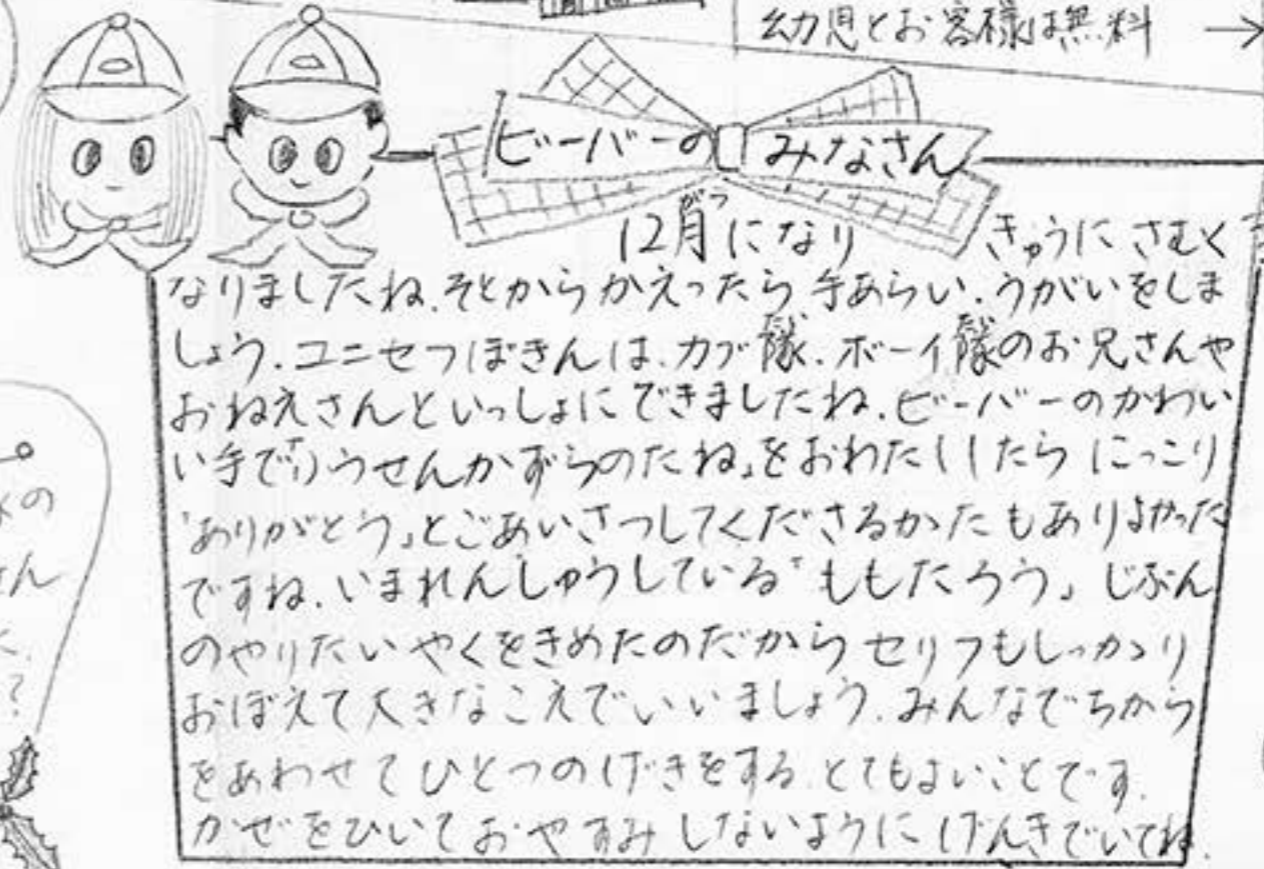 幼児とお客様は無料 →
ビーバーの みなさん
12月になり きゅうに さむく
がつ
なりましたね.そとからかえったら 手あらい.うがいをしま
しょう.ユニセフぼきんは.カブ隊.ボーイ隊のお兄さんや
おねえさんといっしょにできましたね.ビーバーのかわい
い手で「ふうせんかずらのたね」をおわたししたら にっこり
「ありがとう」とごあいさつしてくださるかたもありよかった
ですね.いまれんしゅうしている「ももたろう」じぶん
のやりたい やくをきめたのだから セリフもしっかり
おぼえて 大きなこえでいいましょう.みんなでちから
をあわせて ひとつのげきをする.とてもよいことです.
かぜをひいて おやすみ しないように げんきでいてね.
の
さん
?